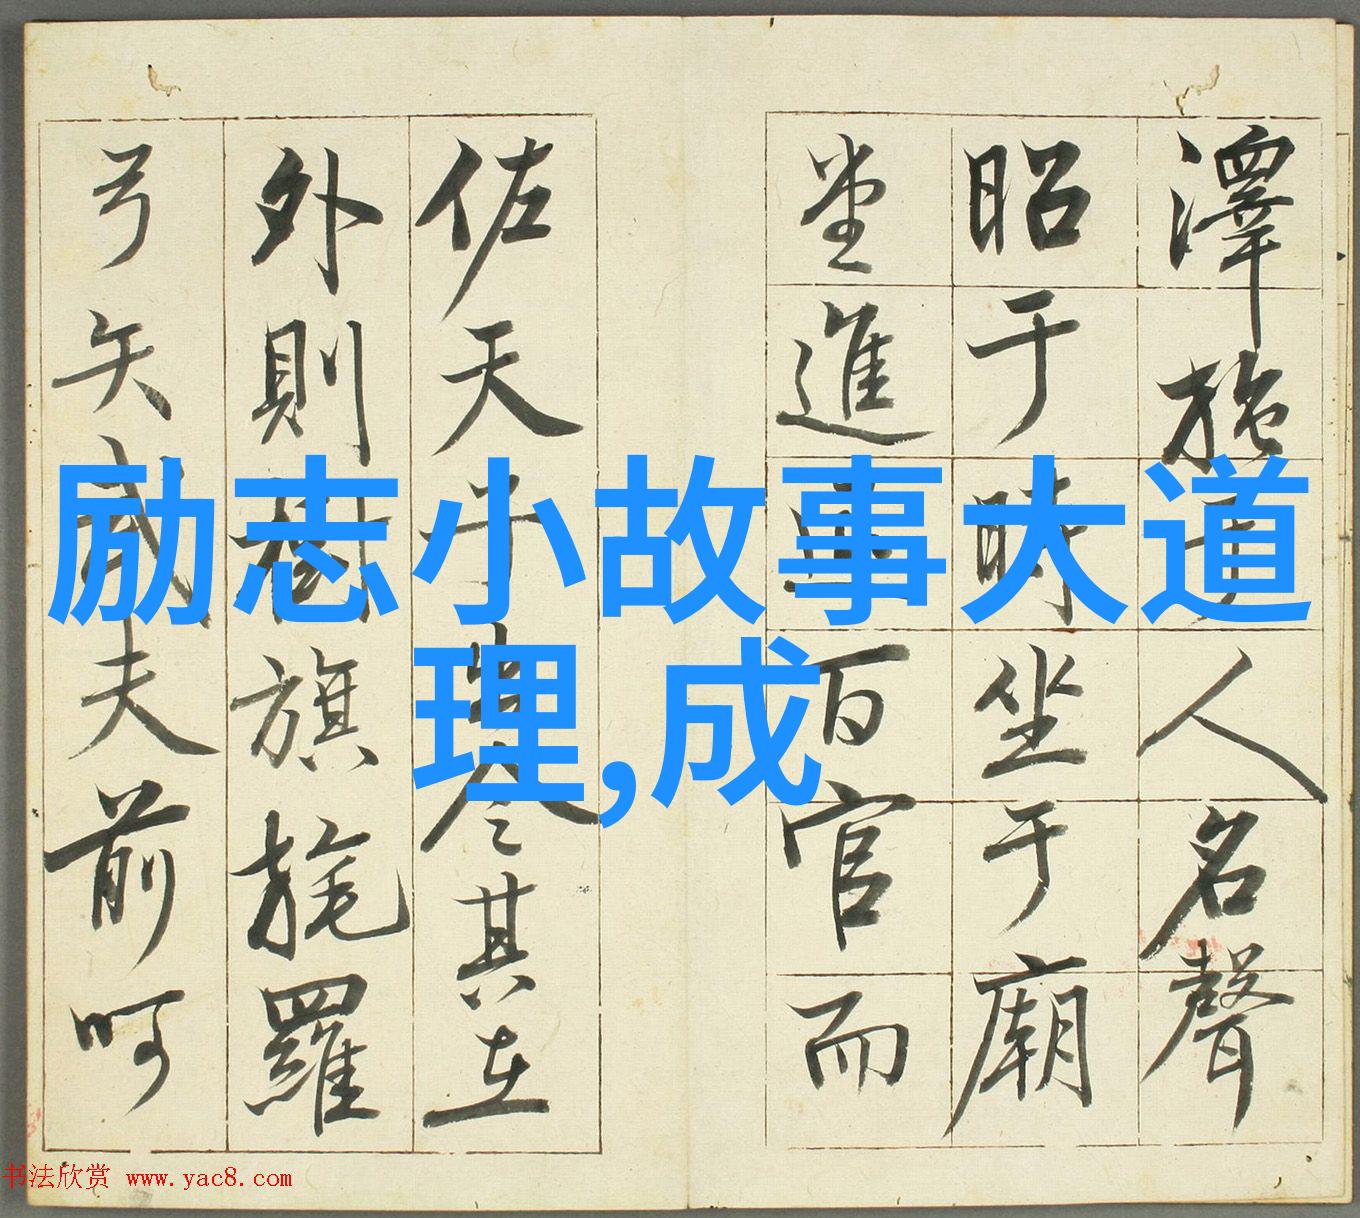 澤施于人名聲
昭于時坐于廟
堂進百官而
佐天子出令其在
外則樹旗旄羅
弓矢武夫前呵
励志小故事大道
理,成
书法欣赏 www.yac8.com